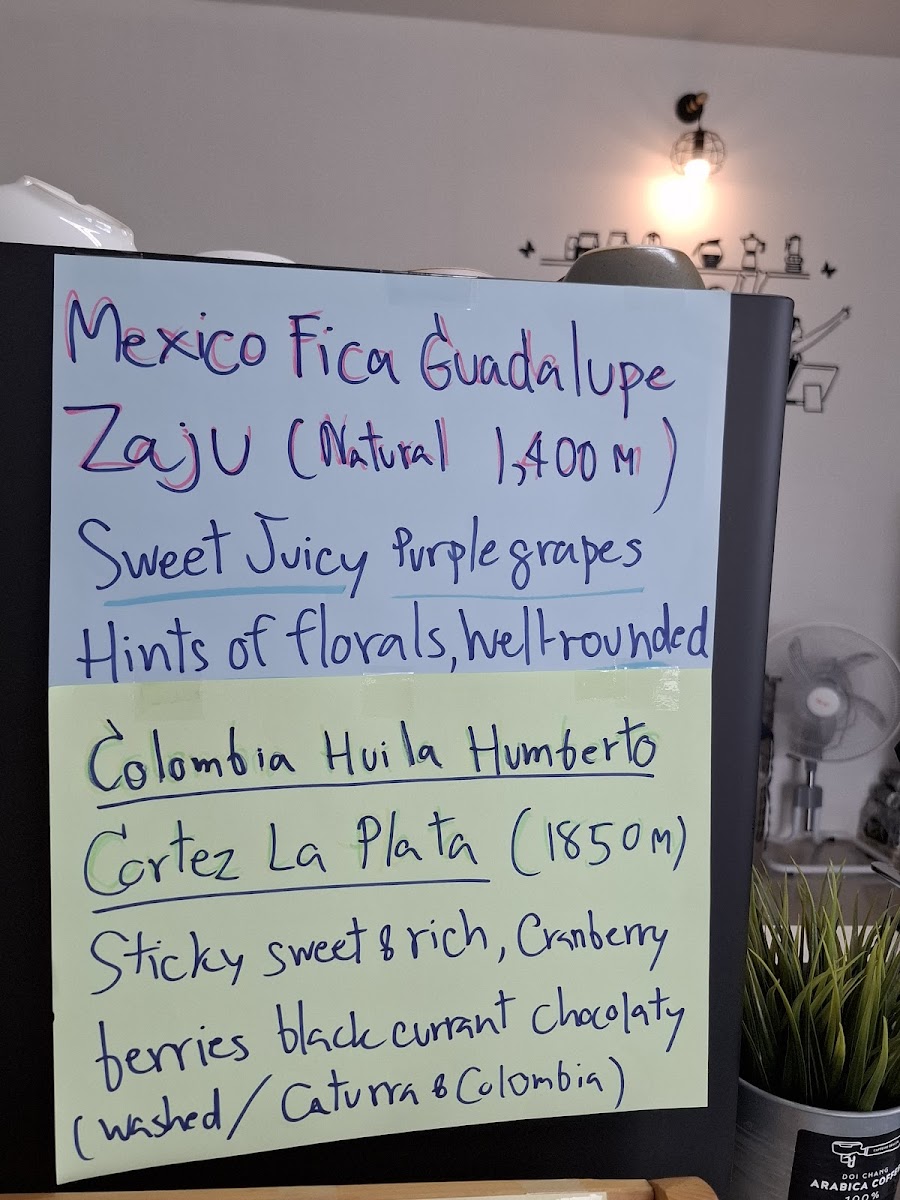 Mexico Fica Guadalupe
Zaju (Natural 1,400 M)
Sweet Juicy Purple grapes
Hints of florals, well-rounded
Colombia Huila Humberto
Cortez La Plata (1850 M)
Sticky sweet & rich, Cranberry
berries black currant chocolaty
(washed / Caturra & Colombia)
DOI CHANG
ARABICA COFFE
100%